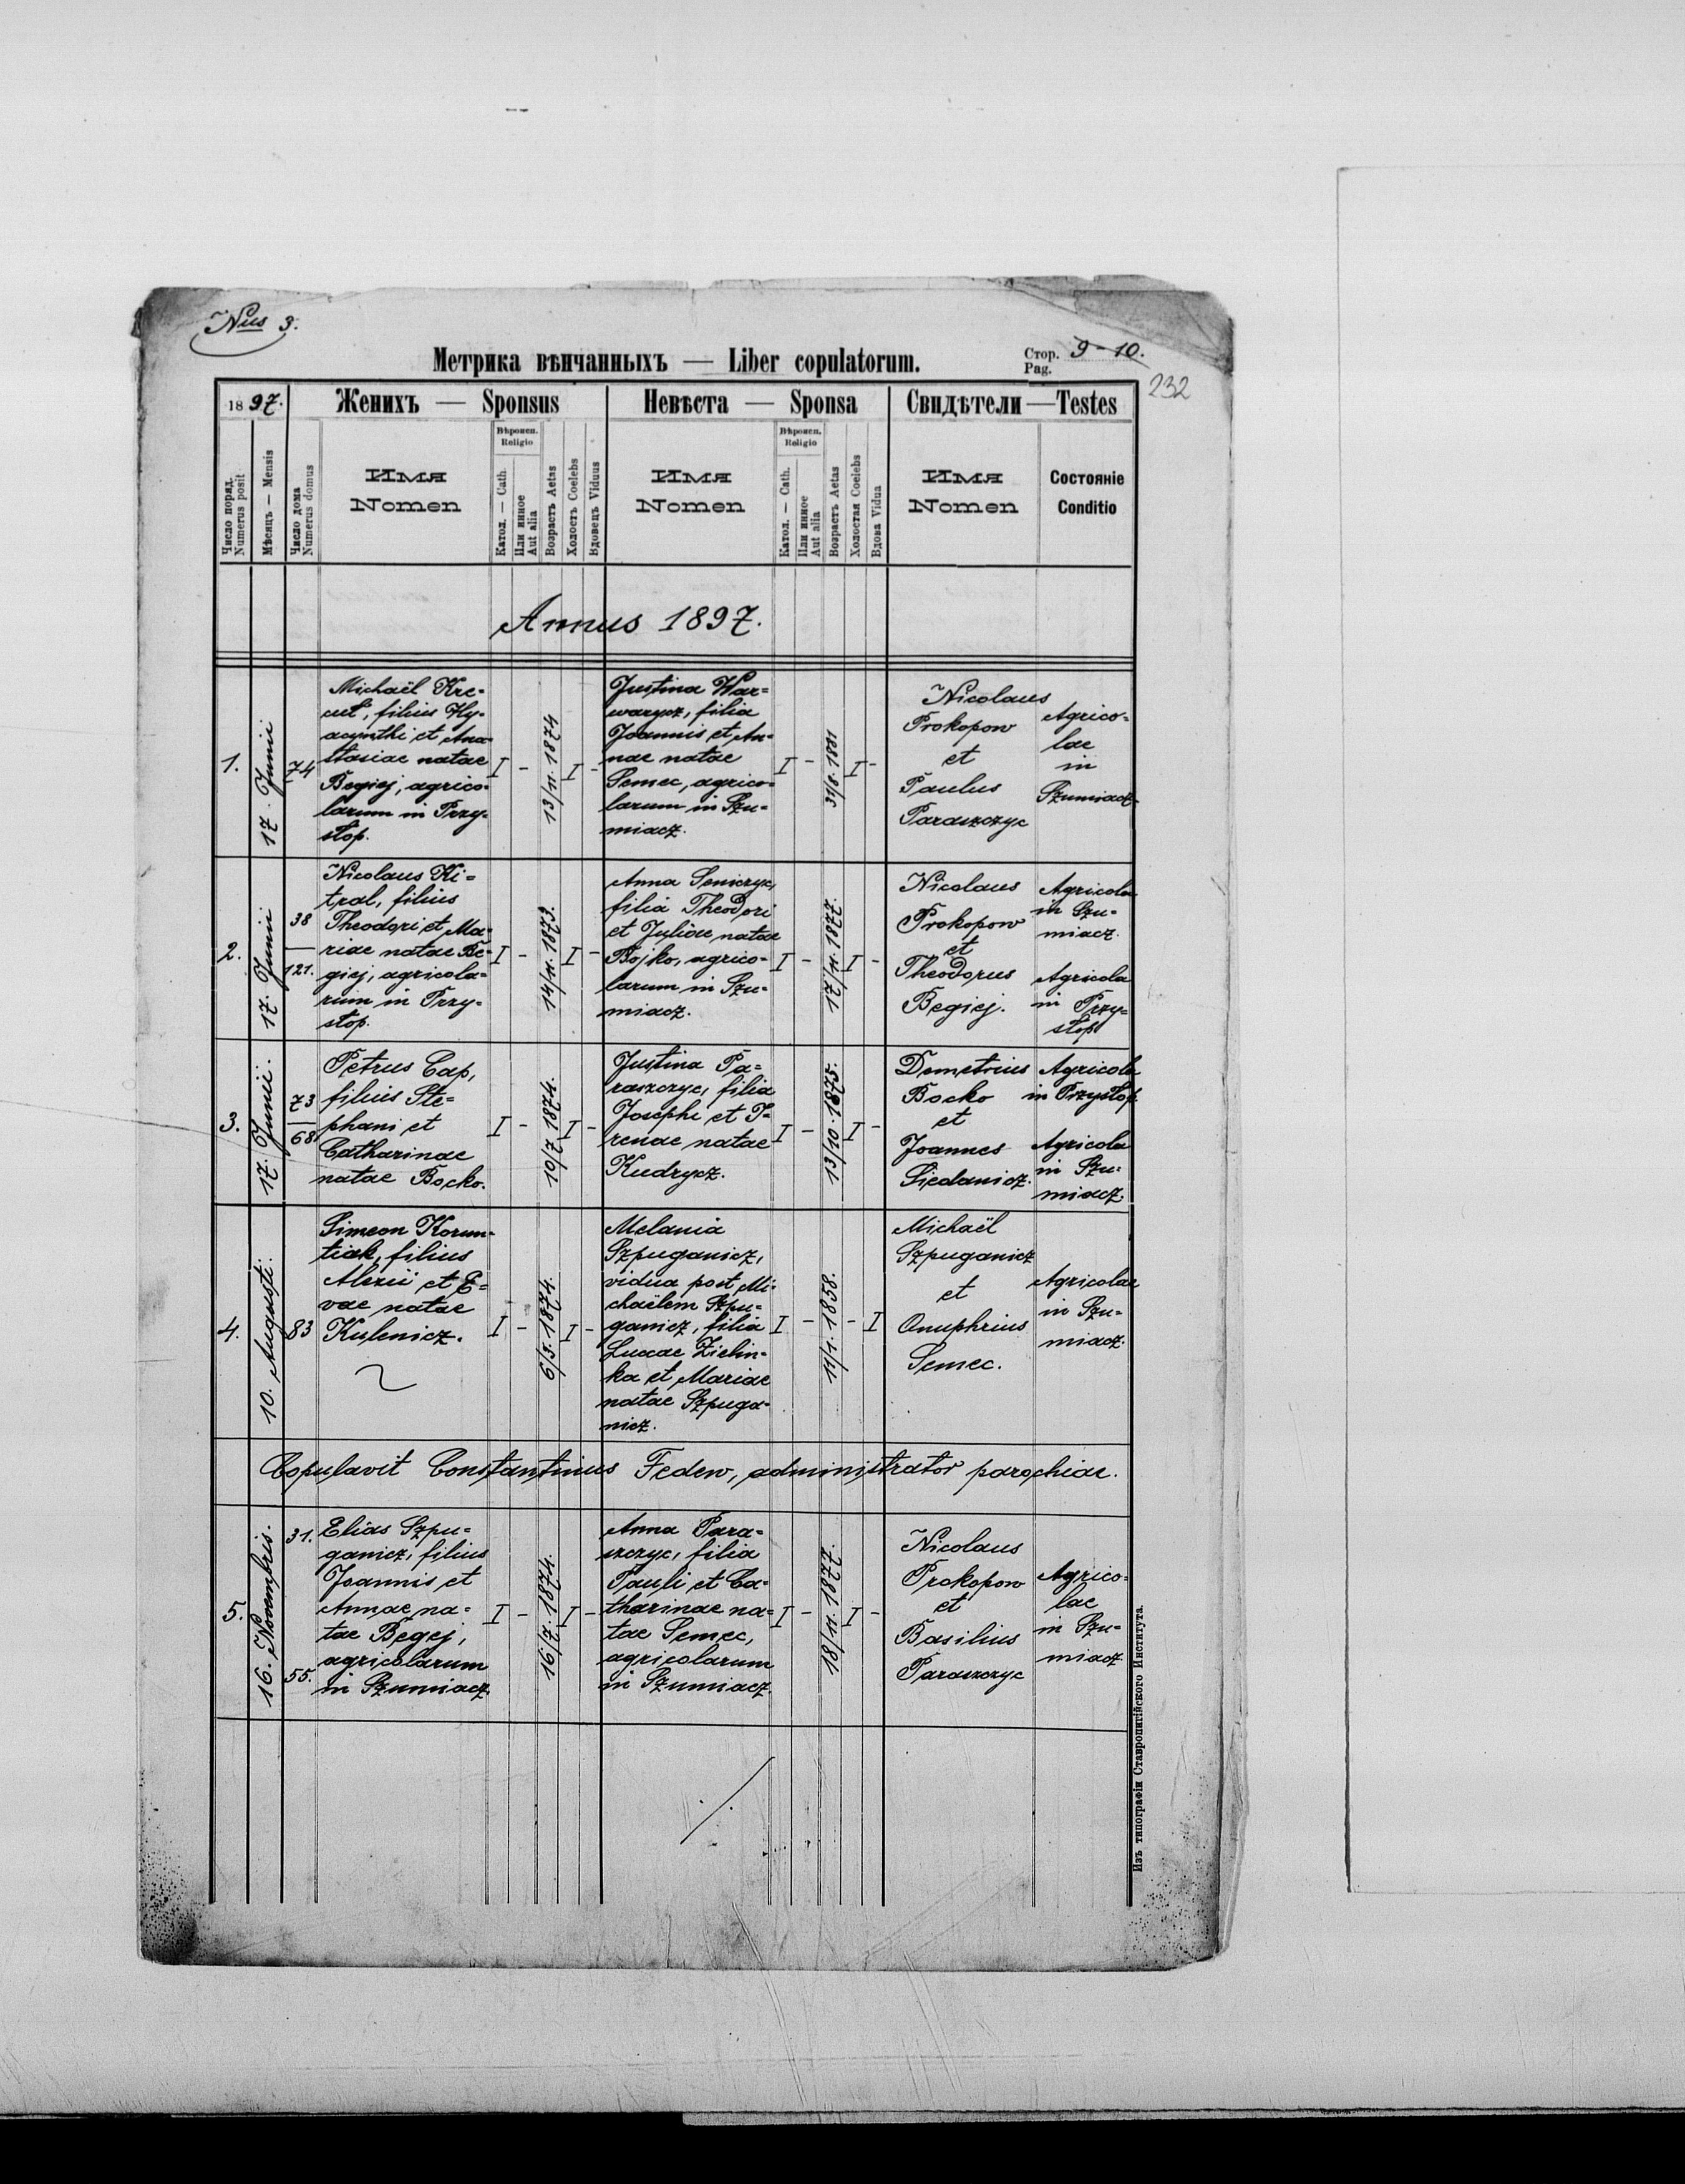 Nus 3.
Метрика вѣнчанныхъ — Liber copulatorum.
Стор. 9-10.
Pag.
232
1897.
Женихъ — Sponsus
Невѣста — Sponsa
Свидѣтели — Testes
Число поряд.
Numerus posit
Мѣсяцъ — Mensis
Число дома
Numerus domus
Имя
Nomen
Вѣроисп.
Religio
Катол. — Cath.
Или инное
Aut alia
Возрастъ Aetas
Холостъ Coelebs
Вдовецъ Viduus
Имя
Nomen
Вѣроисп.
Religio
Катол. — Cath.
Или инное
Aut alia
Возрастъ Aetas
Холостая Coelebs
Вдова Vidua
Имя
Nomen
Состоянiе
Conditio
Annus 1897.
1.
17. Junii
74
Michaël Kre-
cul, filius Hy-
acynthi et Ana-
stasiae natae
Begiej, agrico-
larum in Przy-
stop.
I - 13/11. 1874 I -
Justina War=
warycz, filia
Joannis et An-
nae natae
Semec, agrico-
larum in Szu=
miacz.
I - 31/8. 1881 I -
Nicolaus
Prokopow
et
Paulus
Paraszczyc
Agrico=
lae
in
Szumiacz.
2.
17. Junii
38
121.
Nicolaus Ki=
tral, filius
Theodori et Ma-
riae natae Be-
giej, agricola-
rum in Przy-
stop.
I - 14/11. 1873. I -
Anna Seniczyc,
filia Theodori
et Juliae natae
Bojko, agrico-
larum in Szu=
miacz.
I - 17/11. 1877. I -
Nicolaus
Prokopow
et
Theodorus
Begiej.
Agricola
in Szu-
miacz.
Agricola
in Przy=
stop
3.
17. Junii.
73
68
Petrus Cap,
filius Ste=
phani et
Catharinae
natae Bocko.
I - 10/7. 1874. I -
Justina Pa=
raszczyc, filia
Josephi et I-
renae natae
Kudrycz.
I - 13/10. 1875. I -
Demetrius
Bocko
et
Joannes
Siedanicz.
Agricola
in Przystop.
Agricola
in Szu-
miacz.
4.
10. Augusti.
83
Simeon Korun-
tiak, filius
Alexii et E=
vae natae
Kulenicz.
I - 6/5. 1874. I -
Melania
Szpuganicz,
vidua post Mi-
chaëlem Szpu=
ganicz, filia
Luccae Zielin-
ka et Mariae
natae Szpuga-
nicz.
I - 11/1. 1858. - I
Michaël
Szpuganicz
et
Onuphrius
Semec.
Agricolae
in Szu-
miacz.
Copulavit Constantinus Fedew, administrator parochiae.
5.
16. Novembris.
31.
55.
Elias Szpu=
ganicz, filius
Joannis et
Annae na-
tae Begej,
agricolarum
in Szumiacz
I - 16/7. 1874. I -
Anna Para=
szczyc, filia
Pauli et Ca-
tharinae na=
tae Semec,
agricolarum
in Szumiacz.
I - 18/11. 1877. I -
Nicolaus
Prokopow
et
Basilius
Paraszczyc
Agrico=
lae
in Szu=
miacz.
Изъ типографіи Ставропигійского Института.